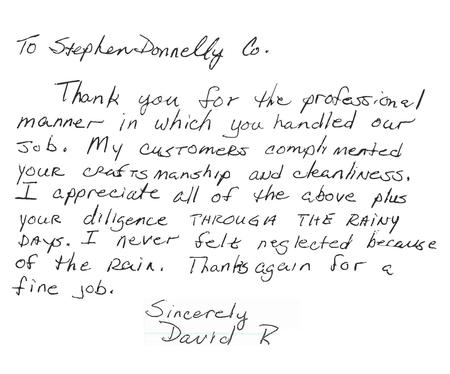 To Stephen Donnelly Co.
Thank you for the professional
manner in which you handled our
Job. My customers complimented
your craftsmanship and cleanliness.
I appreciate all of the above plus
your diligence THROUGH THE RAINY
DAYS. I never felt neglected because
of the Rain. Thanks again for a
fine job.
Sincerely
David R